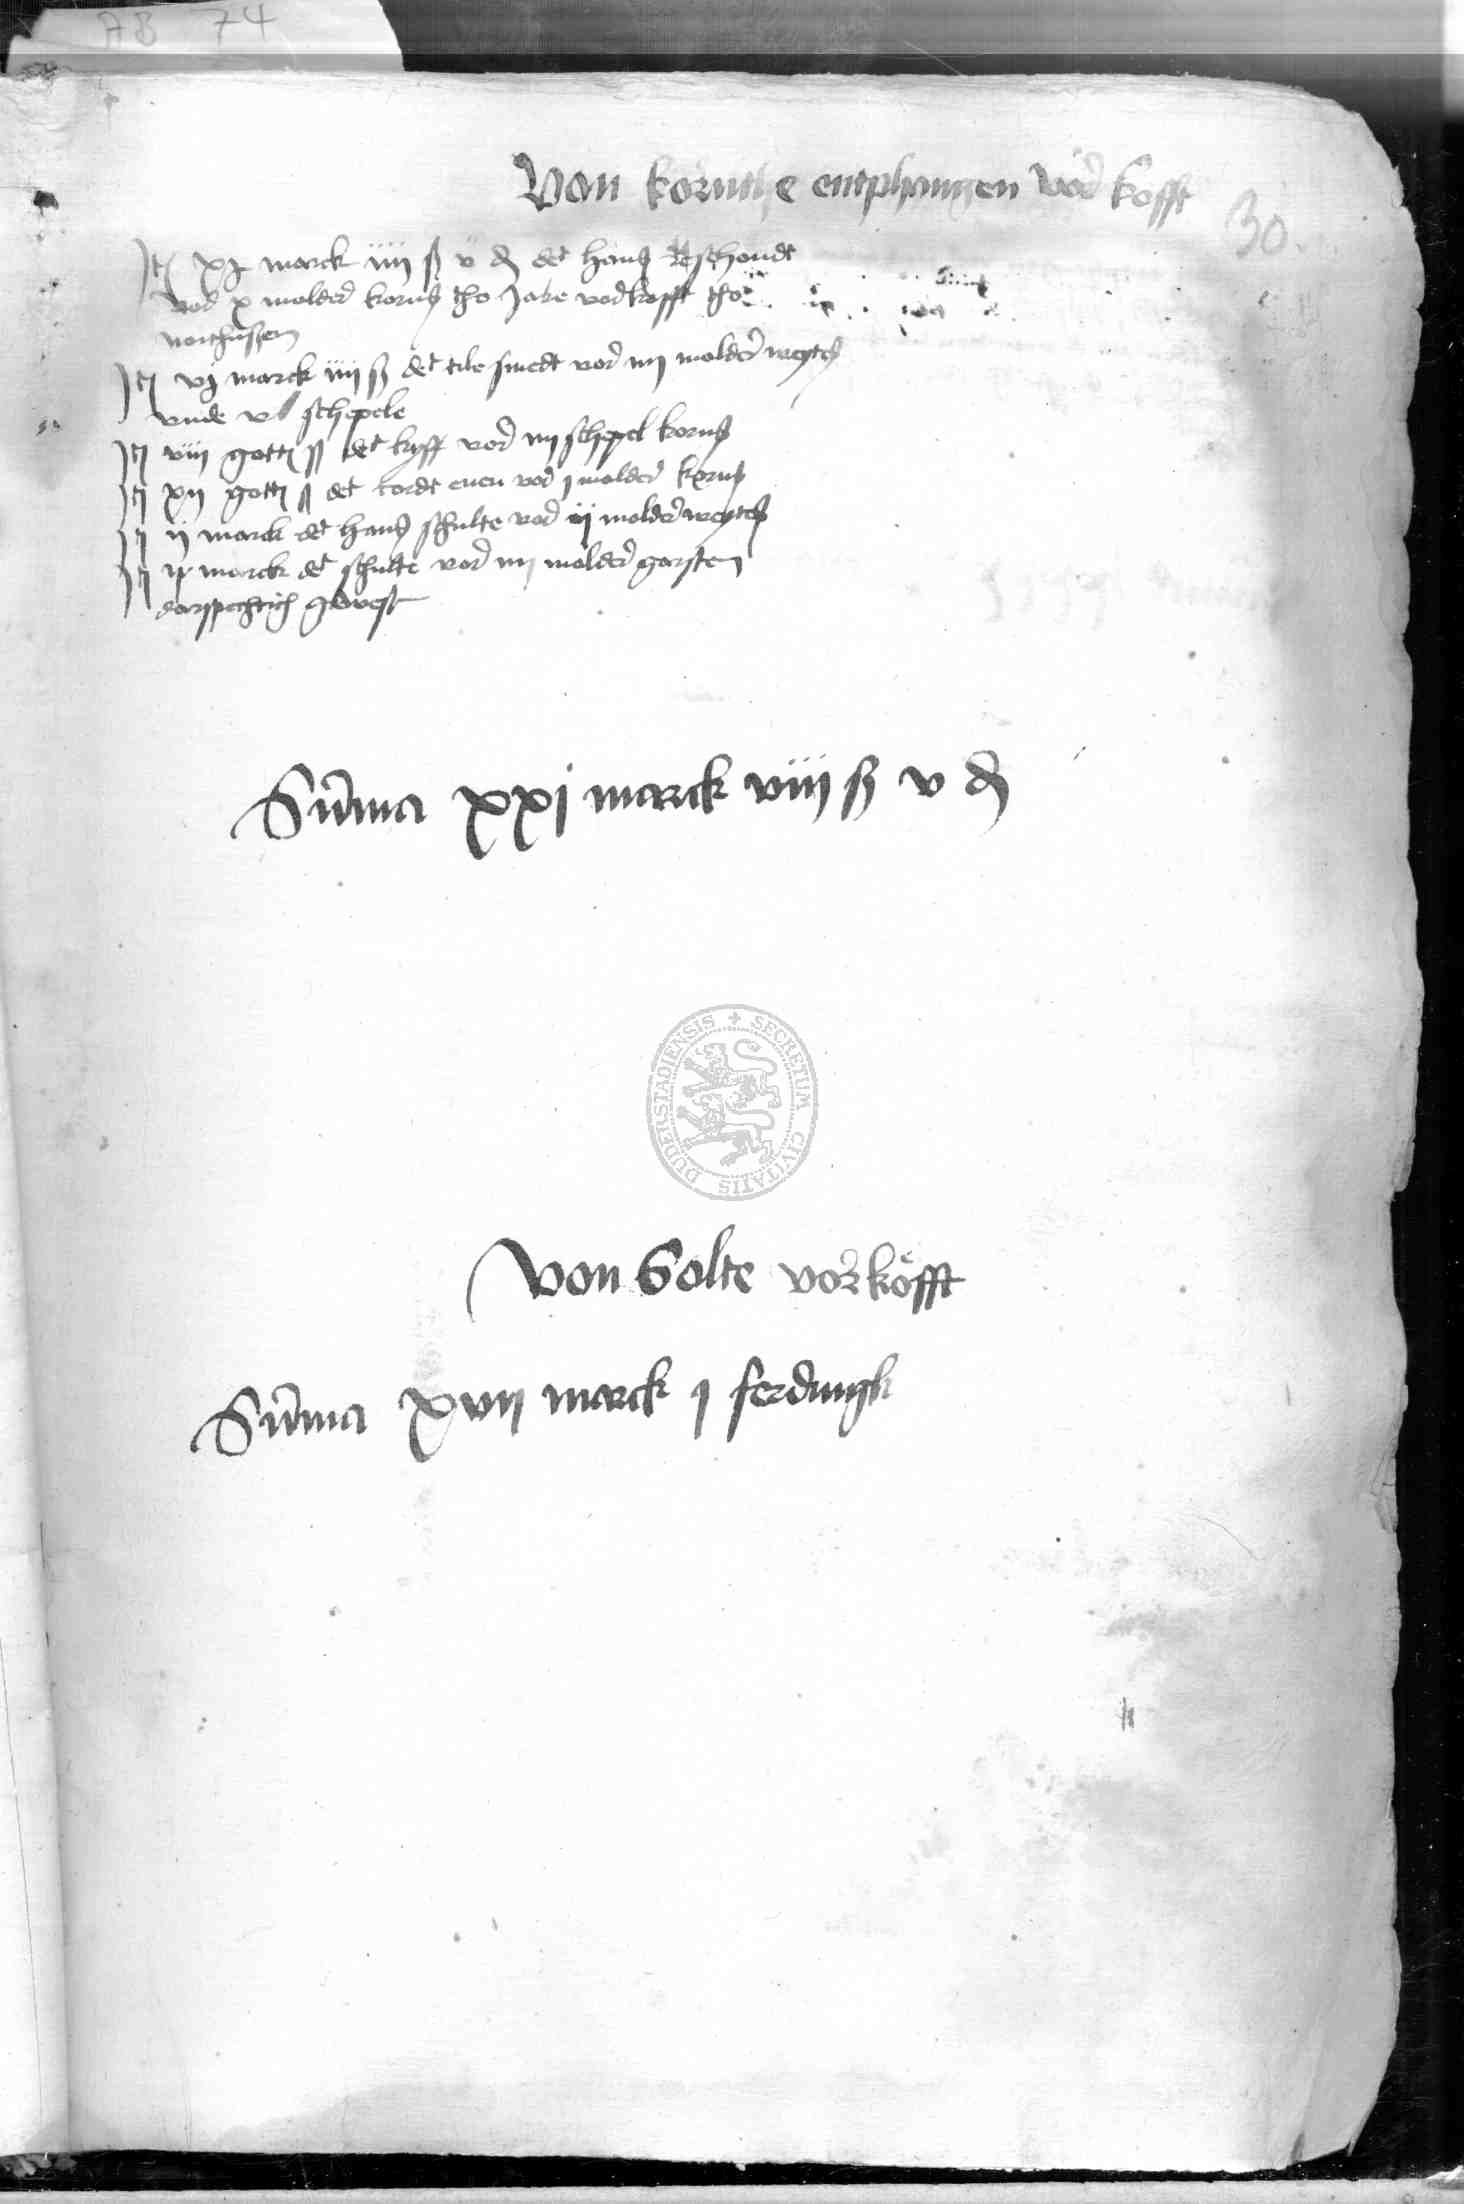 AB 74
Von kornthe entphangen vor kofft
30
It xj marck iiii ß v d det hans
vor x molder korns tho Jare vorkofft tho
northußen
It vj marck iiii ß det tile smedt vor iiij molder weytes
vnde v schepele
It viii gott ß det kyff vor iij schepel korns
It xij gott ß det cordt euen vor j molder korns
It ij marck det hans schulte vor ij molder weytes
It ix marck det schulte vor iij molder garsten
gewest
Summa xxj marck viii ß v d
SECRETUM CIVITATIS DUDERSTADIENSIS
Von Solte vorkofft
Summa xvij marck j ferdingk